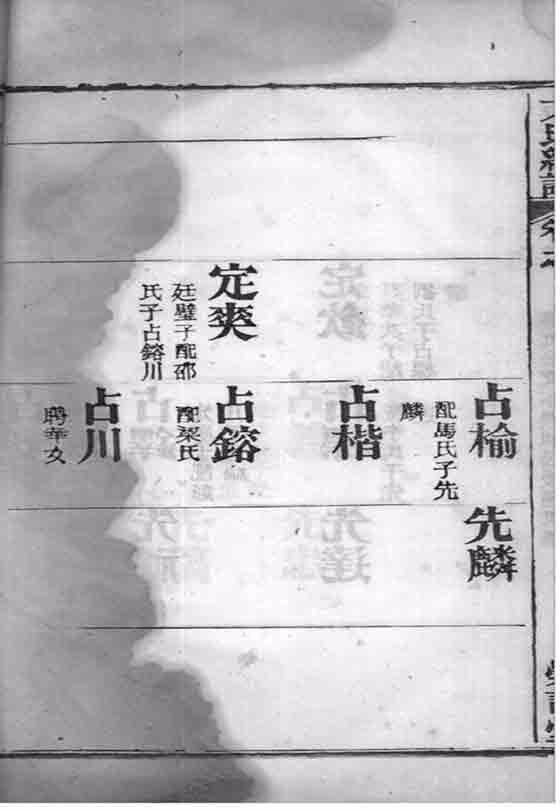 占榆
配馬氏子先
麟
先麟
占楷
定爽
廷璧子配邵
氏子占鎔川
占鎔
配梁氏
占川
聘華女